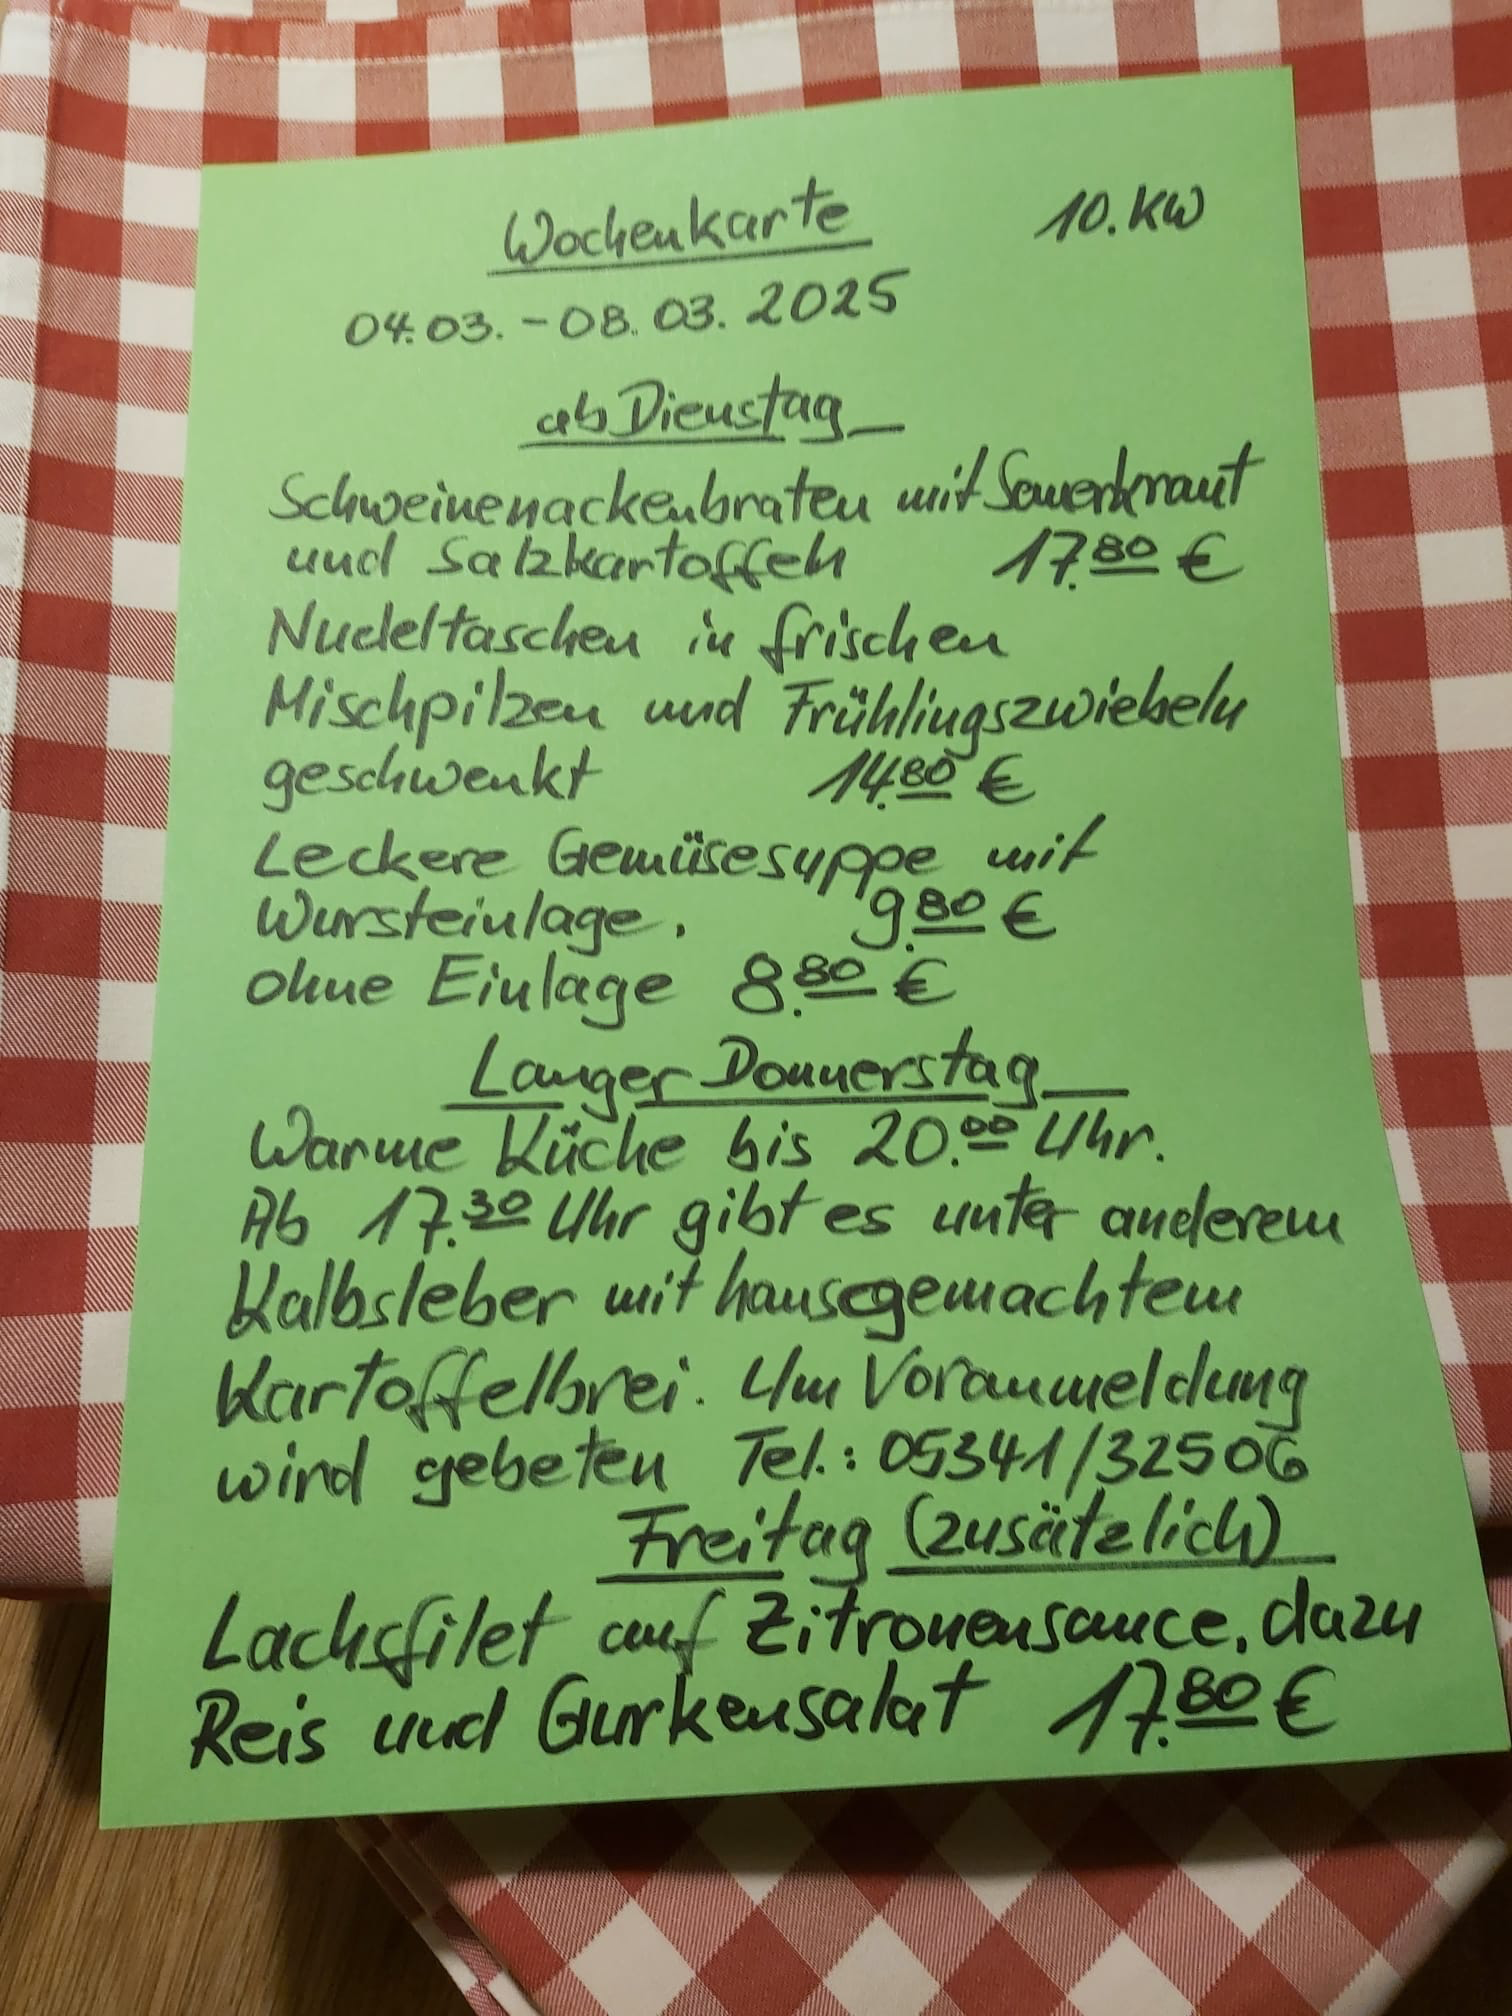 Wochenkarte 10. KW
04.03. - 08.03. 2025
ab Dienstag
Schweinenackenbraten mit Sauerkraut
und Salzkartoffeln 17.80 €
Nudeltaschen in frischen
Mischpilzen und Frühlingszwiebeln
geschwenkt 14.80 €
Leckere Gemüsesuppe mit
Wursteinlage. 9.80 €
ohne Einlage 8.80 €
Langer Donnerstag
Warme Küche bis 20.00 Uhr.
Ab 17.30 Uhr gibt es unter anderem
Kalbsleber mit hausgemachtem
Kartoffelbrei. Um Voranmeldung
wird gebeten Tel.: 05341/32506
Freitag (zusätzlich)
Lachsfilet auf Zitronensauce, dazu
Reis und Gurkensalat 17.80 €